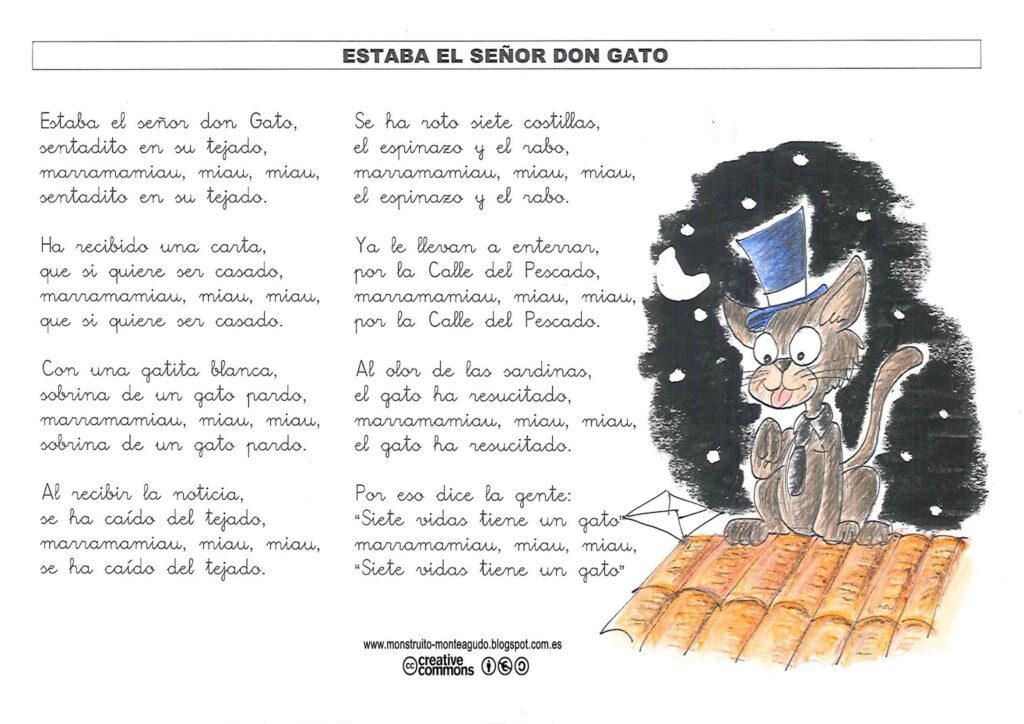 ESTABA EL SEÑOR DON GATO
Estaba el señor don Gato,
sentadito en su tejado,
marramamiau, miau, miau,
sentadito en su tejado.
Ha recibido una carta,
que si quiere ser casado,
marramamiau, miau, miau,
que si quiere ser casado.
Con una gatita blanca,
sobrina de un gato pardo,
marramamiau, miau, miau,
sobrina de un gato pardo.
Al recibir la noticia,
se ha caído del tejado,
marramamiau, miau, miau,
se ha caído del tejado.
Se ha roto siete costillas,
el espinazo y el rabo,
marramamiau, miau, miau,
el espinazo y el rabo.
Ya le llevan a enterrar,
por la Calle del Pescado,
marramamiau, miau, miau,
por la Calle del Pescado.
Al olor de las sardinas,
el gato ha resucitado,
marramamiau, miau, miau,
el gato ha resucitado.
Por eso dice la gente:
“Siete vidas tiene un gato”
marramamiau, miau, miau,
“Siete vidas tiene un gato”
www.monstruito-monteagudo.blogspot.com.es
cc creative commons